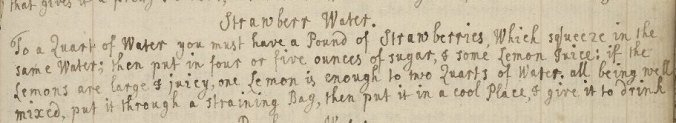 that gives it a
Strawberr Water.
To a Quart of Water you must have a Pound of Strawberries, Which squeeze in the
same Water; then put in four or five ounces of sugar, & some Lemon Juice: if the
Lemons are large & juicy, one Lemon is enough to two Quarts of Water. all being well
mixed, put it through a straining Bag, then put it in a cool Place, & give it to drink
Water